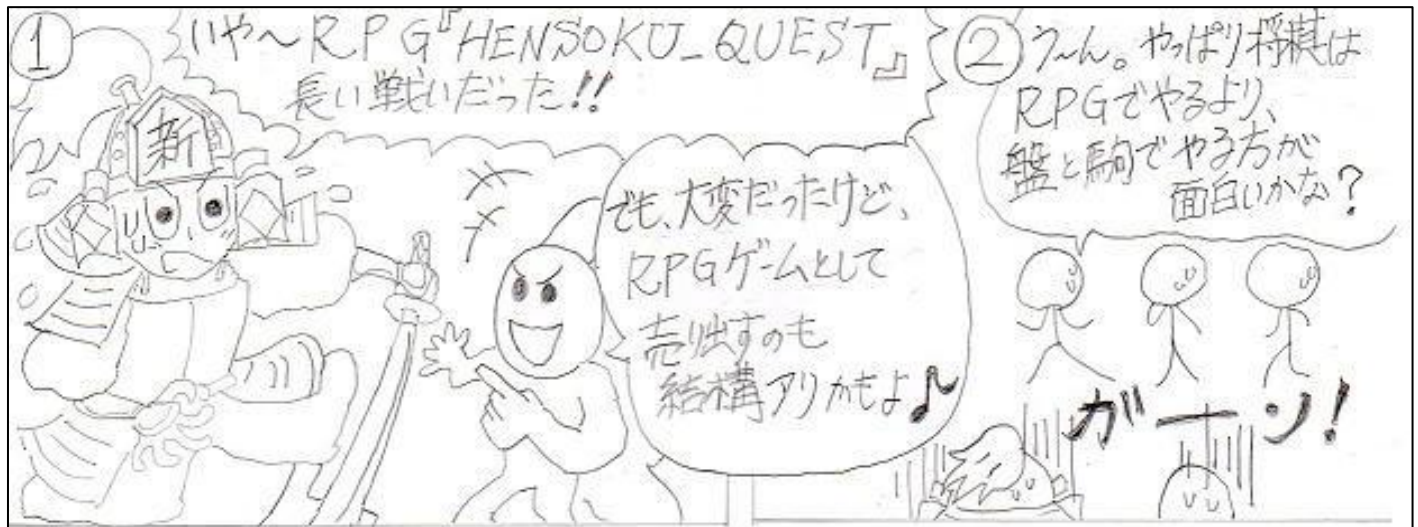 1
いや～RPG『HENSOKU_QUEST』
長い戦いだった!!
新
でも、大変だったけど、
RPGゲームとして
売り出すのも
結構アリかもよ♪
2
う～ん。やっぱり将棋は
RPGでやるより、
盤と駒でやる方が
面白いかな?
ガーン!